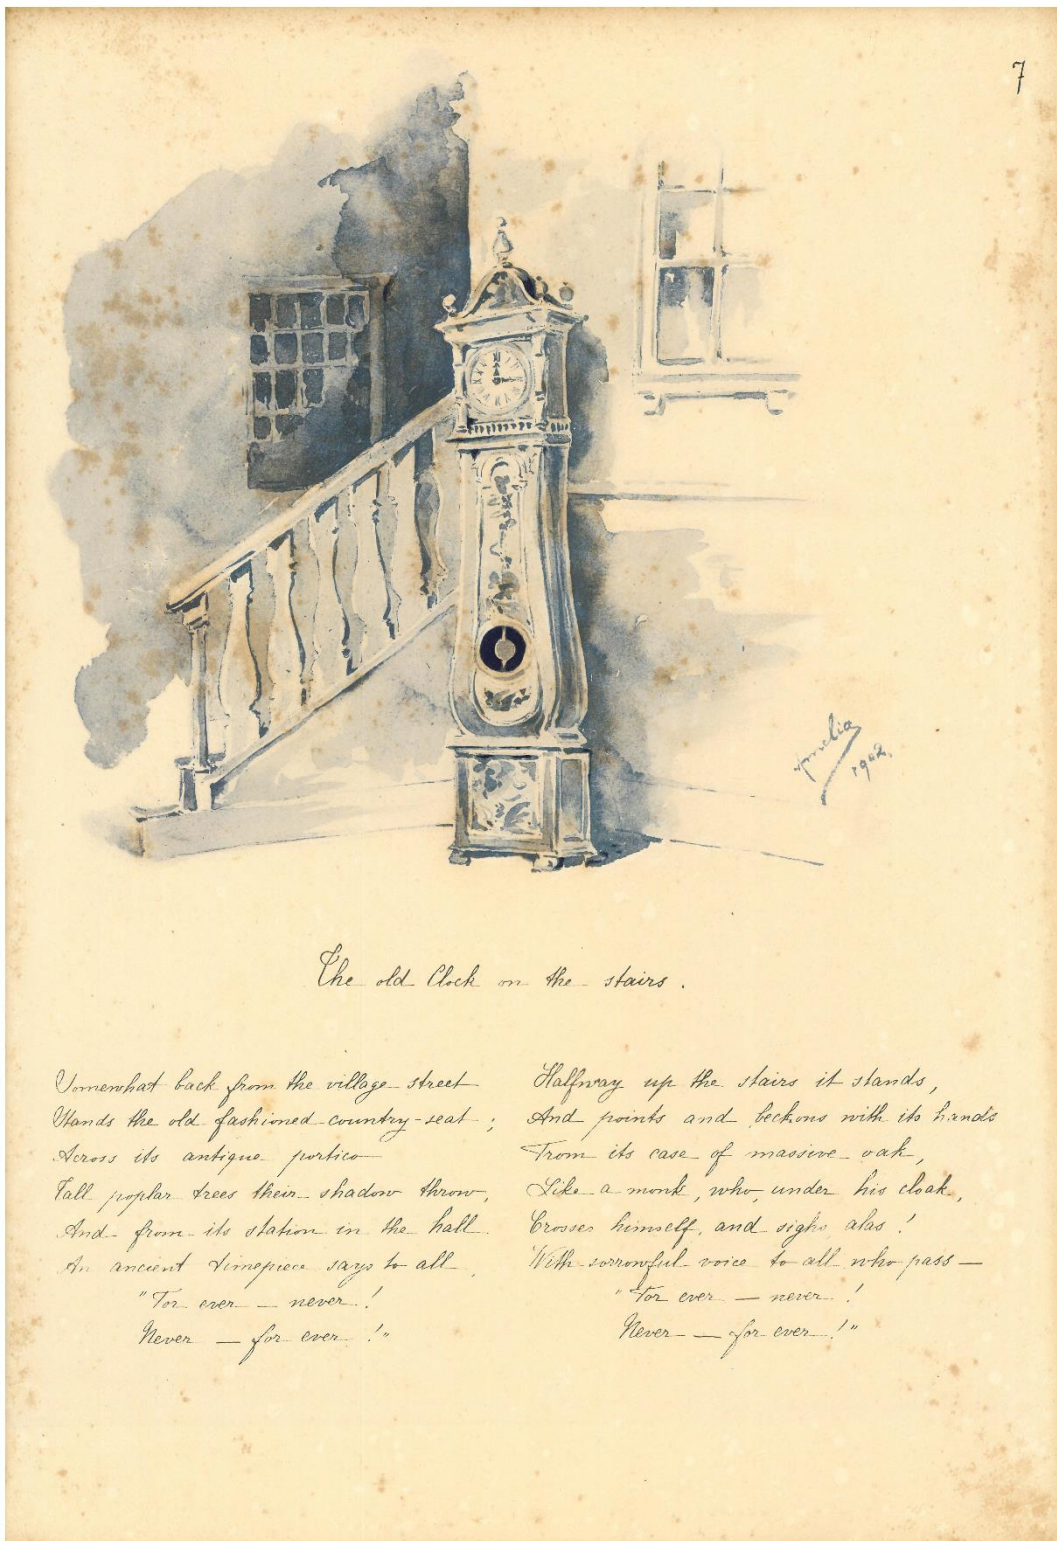 7
Amelia
1902.
The old Clock on the stairs.
Somewhat back from the village street
Stands the old fashioned country-seat;
Across its antique portico
Tall poplar trees their shadow throw,
And from its station in the hall
An ancient timepiece says to all,
"For ever — never!
Never — for ever!"
Halfway up the stairs it stands,
And points and beckons with its hands
From its case of massive oak,
Like a monk, who, under his cloak,
Crosses himself, and sighs, alas!
With sorrowful voice to all who pass —
"For ever — never!
Never — for ever!"